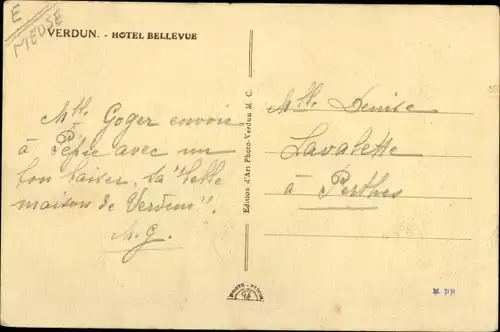 E
MEUSE
VERDUN. - HOTEL BELLEVUE
Mlle Goger envoie
à Pépée avec un
bon baiser, sa "belle
maison de Verdun".
M. G.
Edition d'Art Photo-Verdun M. C.
Mlle Denise
Lavalette
à Perthes
PHOTO - VERDUN
94
PR